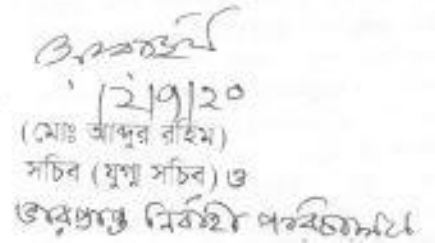 12/9/20
(মোঃ আব্দুর রহিম)
সচিব (যুগ্ম সচিব) ও
ভারপ্রাপ্ত নির্বাহী পরিচালক